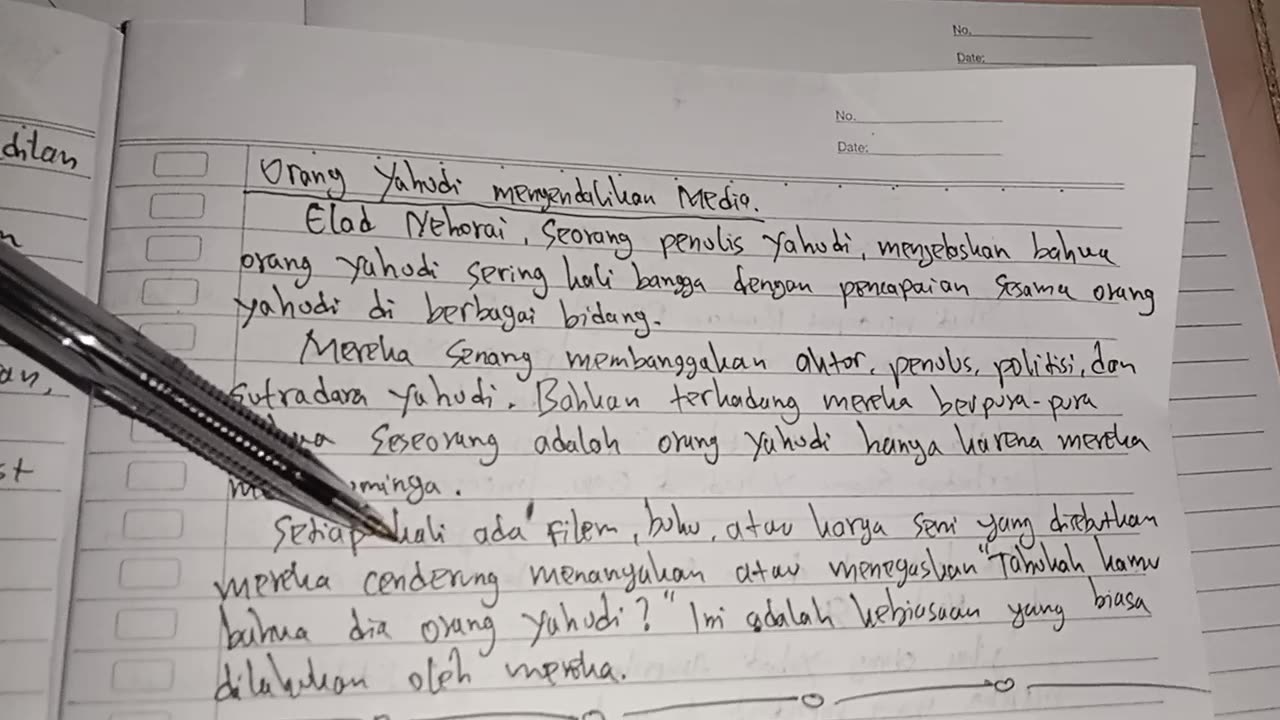 No.
Date:
No.
Date:
ditan
Orang Yahudi mengendalikan Media.
Elad Nehorai, seorang penulis Yahudi, menjelaskan bahwa
orang yahudi sering kali bangga dengan pencapaian sesama orang
yahudi di berbagai bidang.
Mereka senang membanggakan aktor, penulis, politisi, dan
Sutradara Yahudi. Bahkan terkadang mereka berpura-pura
seseorang adalah orang Yahudi hanya karena mereka
Setiap kali ada filem, buku, atau karya seni yang disebutkan
mereka cenderung menanyakan atau menegaskan "Tahukah kamu
bahwa dia orang Yahudi?" Ini adalah kebiasaan yang biasa
dilakukan oleh mereka.